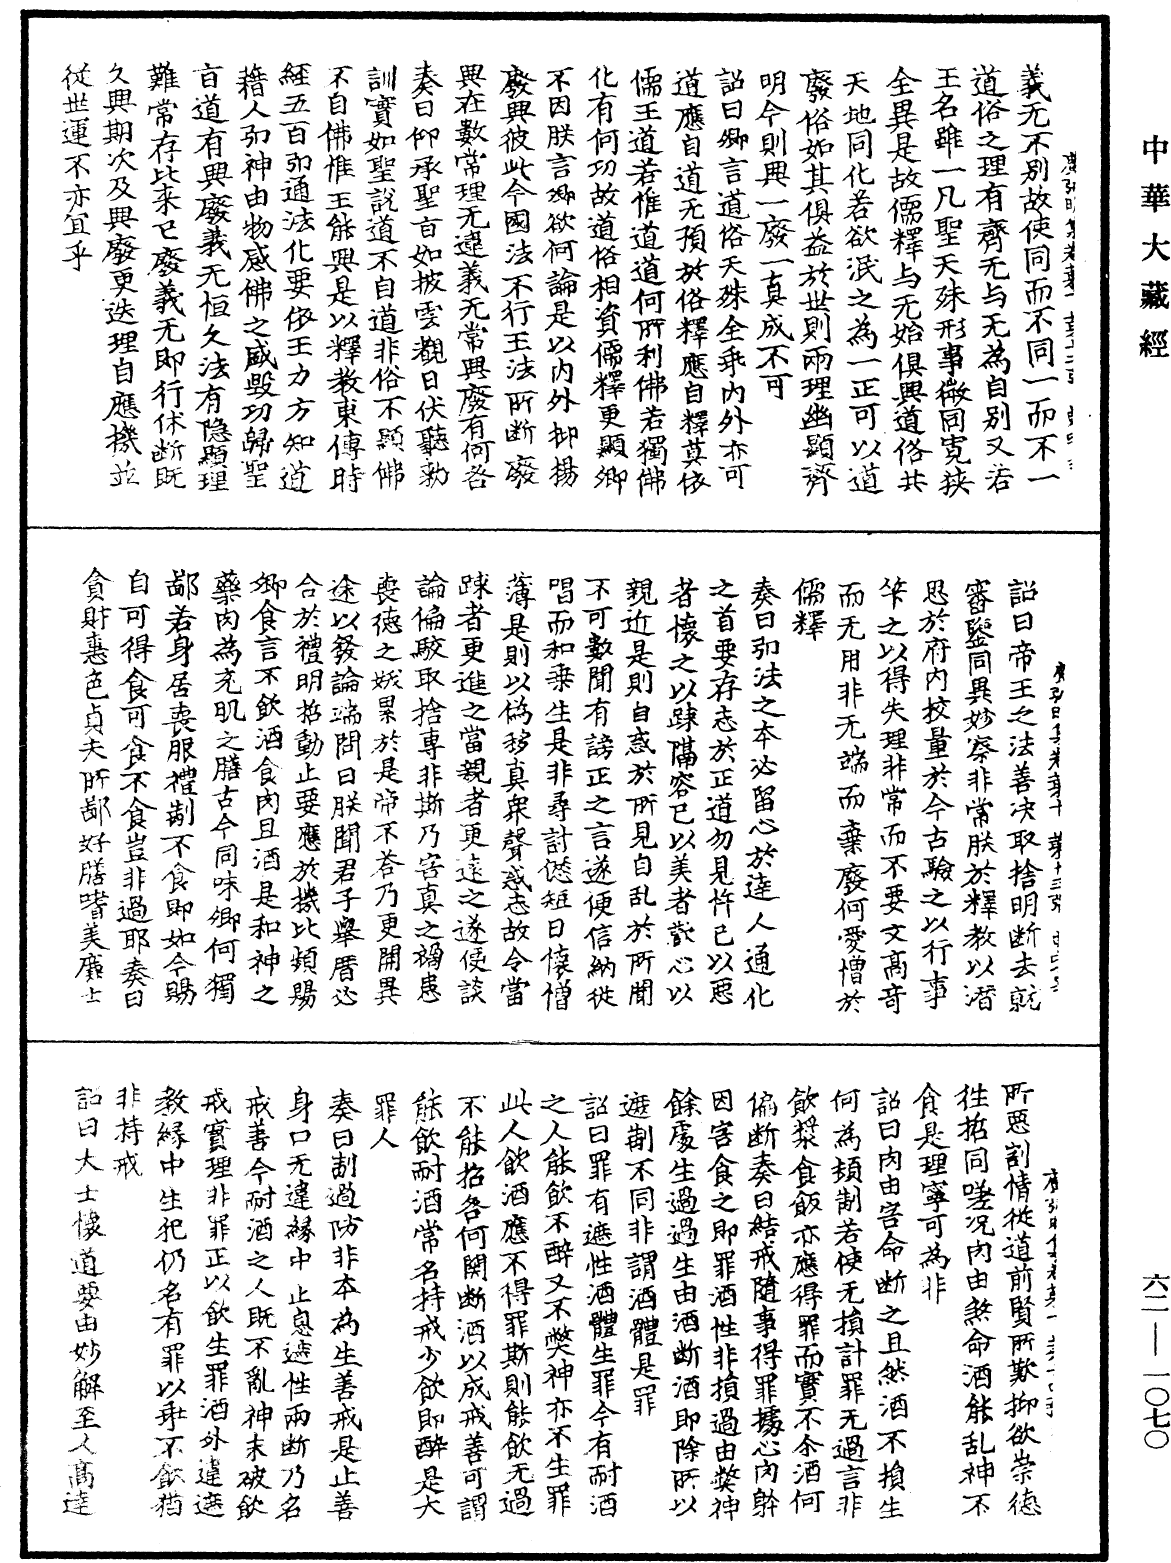 中華大藏經
義无不別故使同而不同一而不一
道俗之理有齊无与无為自別又若
王名雖一凡聖天殊形事微同寬狹
全異是故儒釋与无始俱興道俗共
天地同化若欲泯之為一正可以道
廢俗如其俱益於世則兩理幽顯齊
明今則興一廢一真成不可
詔曰卿言道俗天殊全乖內外亦可
道應自道无預於俗釋應自釋莫依
儒王道若惟道道何所利佛若獨佛
化有何功故道俗相資儒釋更顯卿
不因朕言卿欲何論是以內外抑揚
廢興彼此今國法不行王法所断廢
興在數常理无違義无常興廢有何咎
奏曰仰承聖旨如披雲觀日伏聽勑
訓實如聖說道不自道非俗不顯佛
不自佛惟王能興是以釋教東傳時
經五百弘通法化要依王力方知道
藉人弘神由物感佛之盛毀功歸聖
旨道有興廢義无恒久法有隱顯理
難常存比来已廢義无即行休断既
久興期次及興廢更迭理自應機並
從世運不亦宜乎
詔曰帝王之法善决取捨明断去就
審鑒同異妙察非常朕於釋教以潛
思於府內校量於今古驗之以行事
筭之以得失理非常而不要文高奇
而无用非无端而棄廢何愛憎於
儒釋
奏曰弘法之本必留心於達人通化
之首要存志於正道勿見忤已以惡
者懷之以踈隔容已以美者歡心以
親近是則自惑於所見自乱於所聞
不可數聞有謗正之言遂便信納從
唱而和乗生是非尋討愆短日懷憎
薄是則以偽移真衆聲惑志故令當
踈者更進之當親者更遠之遂使談
論偏駮取捨專非斯乃害真之禍患
喪德之妖累於是帝不荅乃更開異
途以發論端問曰朕聞君子舉厝必
合於禮明哲動止要應於機比頻賜
卿食言不飲酒食肉且酒是和神之
藥肉為充肌之膳古今同味卿何獨
鄙若身居喪服禮制不食即如今賜
自可得食可食不食豈非過耶奏曰
貪財憙色貞夫所鄙好膳嗜美廉士
所惡割情從道前賢所歎抑欲崇德
往哲同嗟况肉由煞命酒能乱神不
食是理寧可為非
詔曰肉由害命断之且然酒不損生
何為頻制若使无損計罪无過言非
飲漿食飯亦應得罪而實不尒酒何
偏断奏曰結戒隨事得罪據心肉躰
因害食之即罪酒性非損過由弊神
餘處生過過生由酒断酒即除所以
遮制不同非謂酒體是罪
詔曰罪有遮性酒體生罪今有耐酒
之人能飲不醉又不弊神亦不生罪
此人飲酒應不得罪斯則能飲无過
不能招咎何關断酒以成戒善可謂
能飲耐酒常名持戒少飲即醉是大
罪人
奏曰制過防非本為生善戒是止善
身口无違緣中止息遮性兩断乃名
戒善今耐酒之人既不亂神未破飲
戒實理非罪正以飲生罪酒外違遮
教緣中生犯仍名有罪以乖不飲猶
非持戒
詔曰大士懷道要由妙解至人高達
六二—一〇七〇